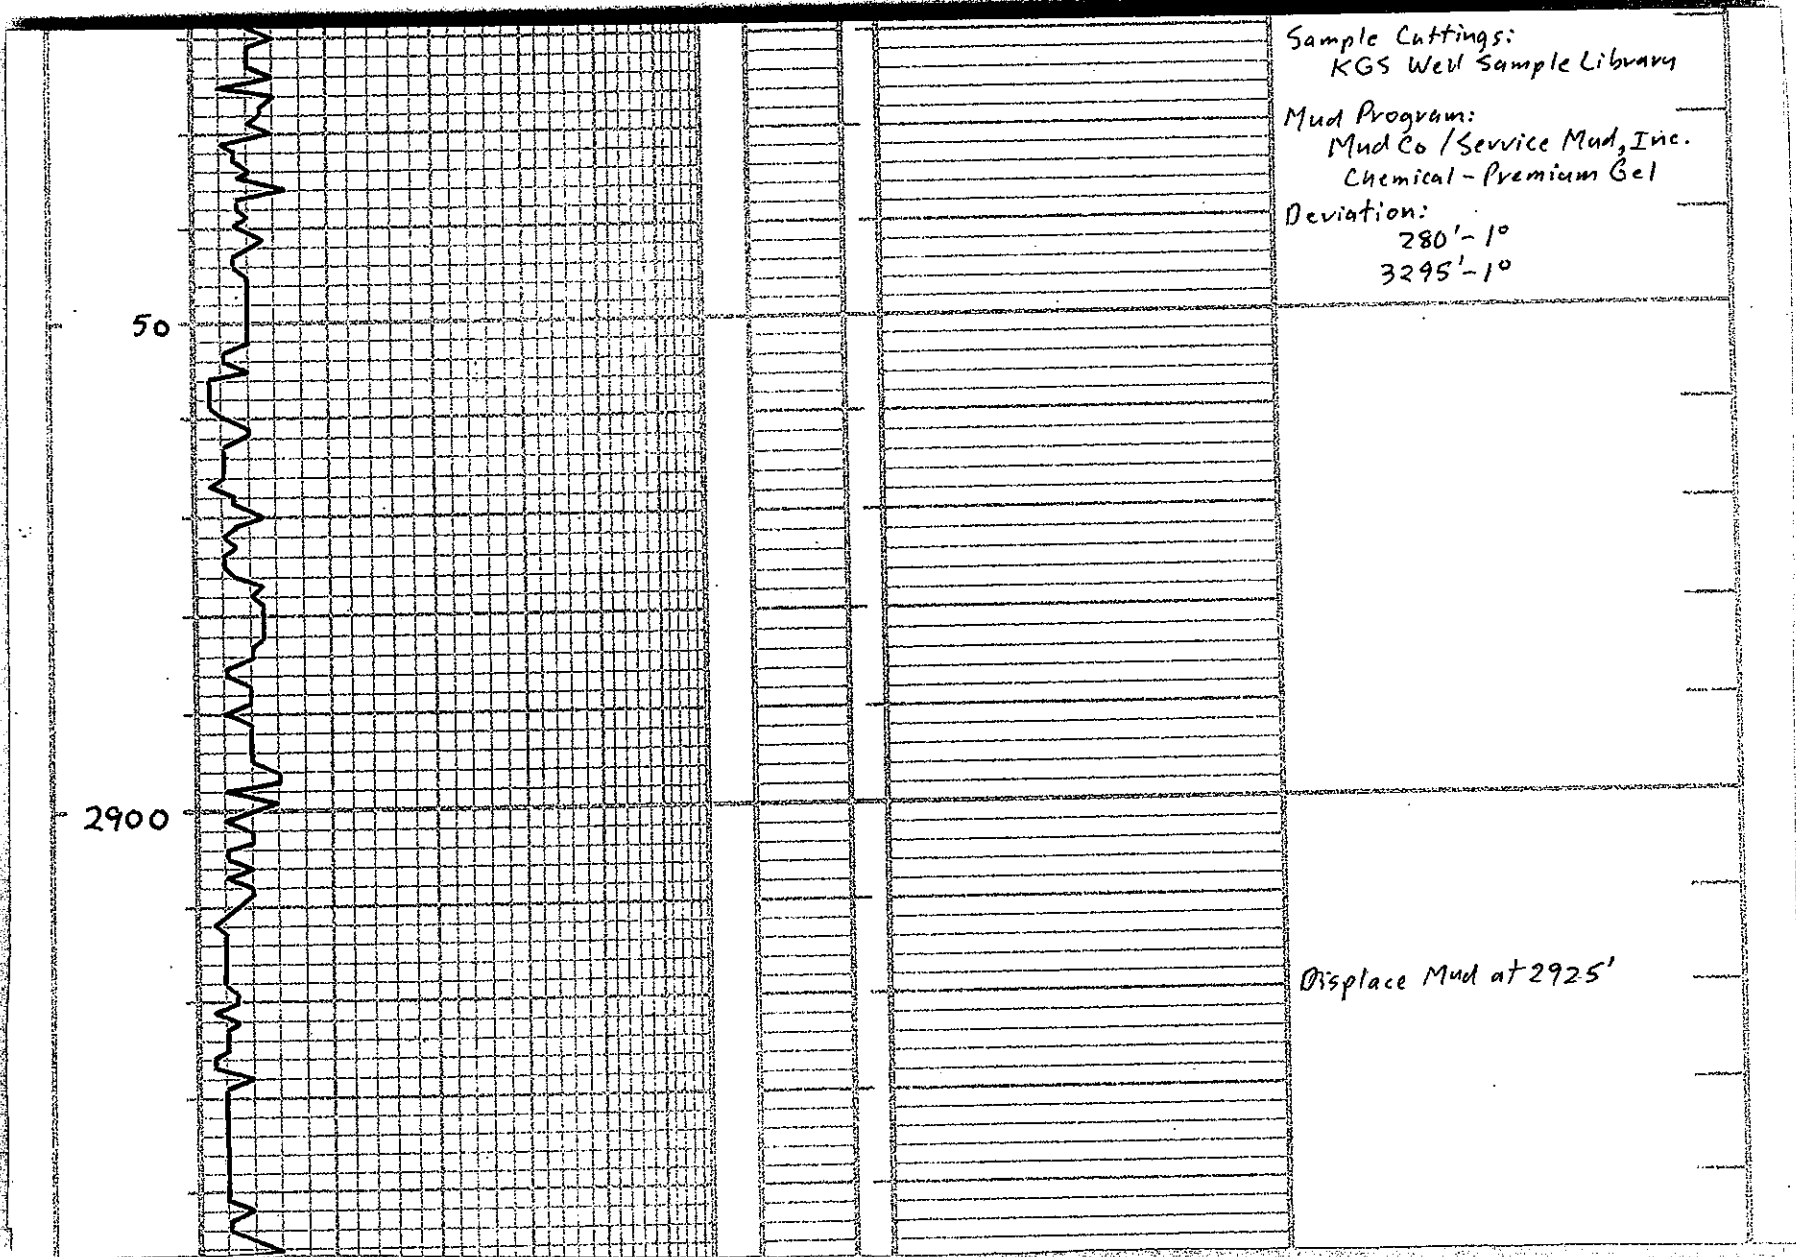 Sample Cuttings:
KGS Well Sample Library
Mud Program:
Mud Co / Service Mud, Inc.
Chemical - Premium Gel
Deviation:
280' - 1°
3295' - 1°
50
2900
Displace Mud at 2925'